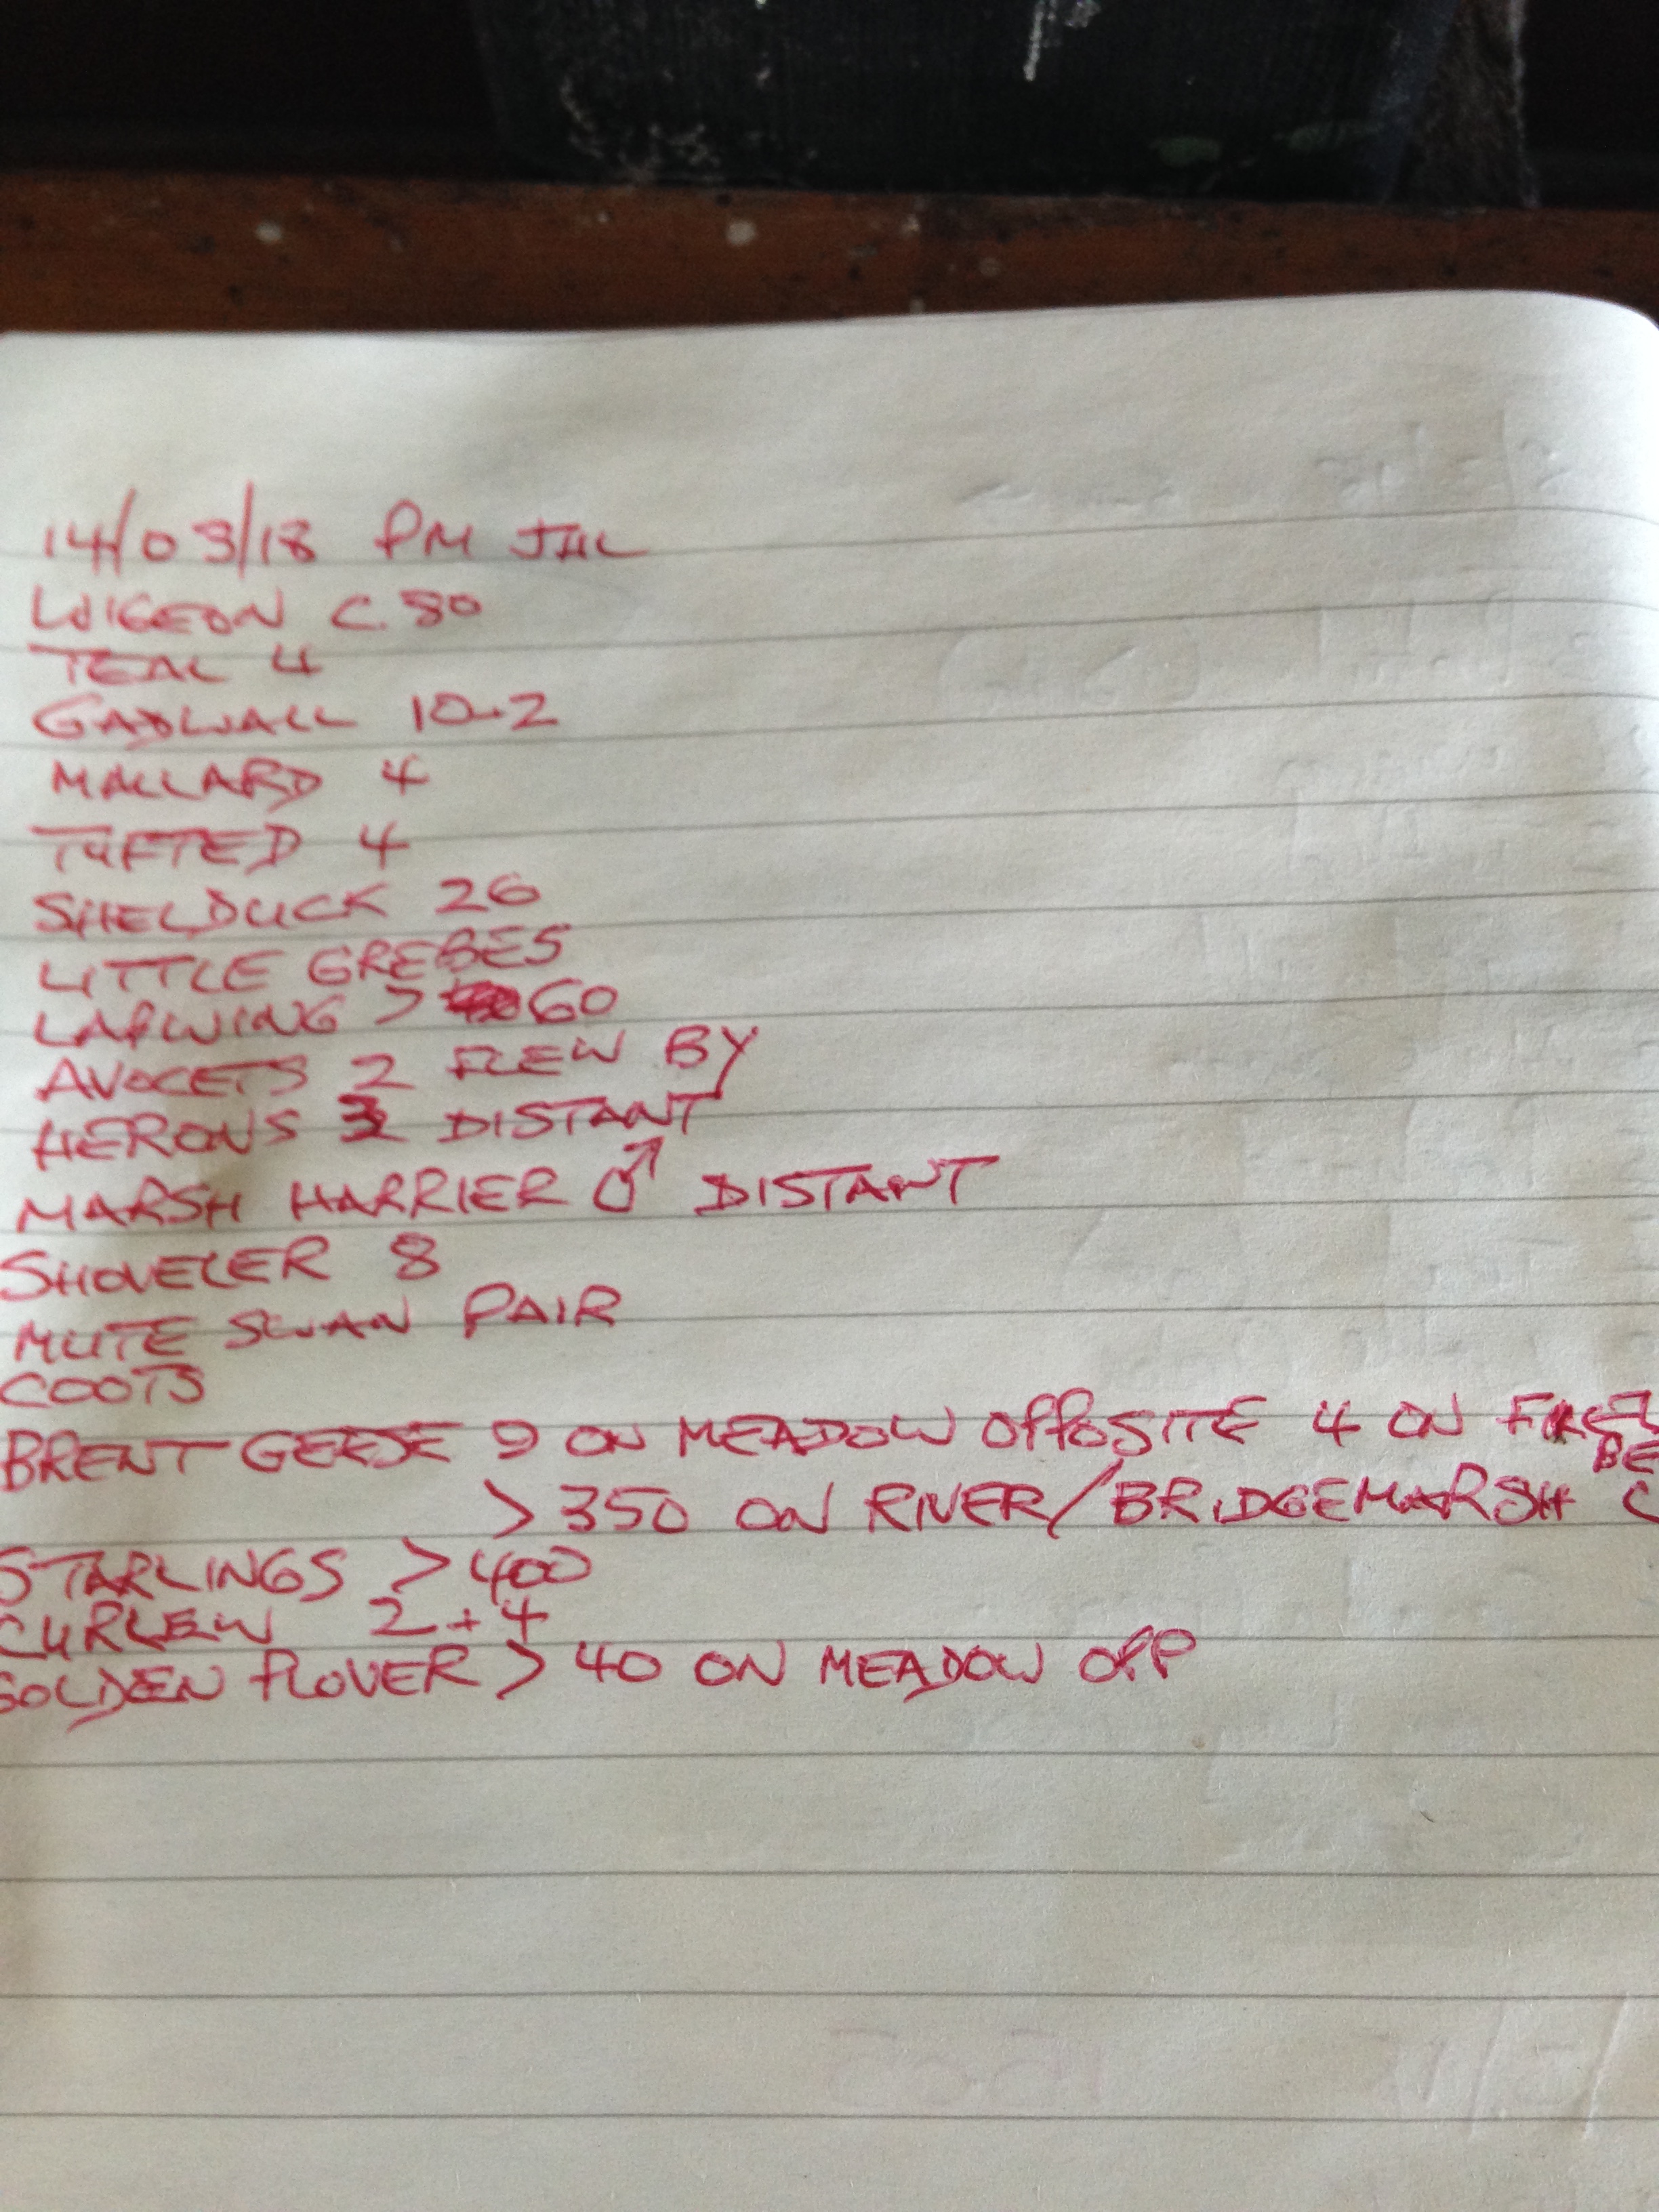 14/03/18 PM JHL
WIGEON C. 80
TEAL 4
GADWALL 10-2
MALLARD 4
TUFTED 4
SHELDUCK 26
LITTLE GREBES
LAPWING > 60
AVOCETS 2 FLEW BY
HERONS DISTANT
MARSH HARRIER ♂ DISTANT
SHOVELER 8
MUTE SWAN PAIR
COOTS
BRENT GEESE 9 ON MEADOW OPPOSITE 4 ON
> 350 ON RIVER/BRIDGEMARSH
STARLINGS > 400
CURLEW 2 + 4
GOLDEN PLOVER > 40 ON MEADOW OPP